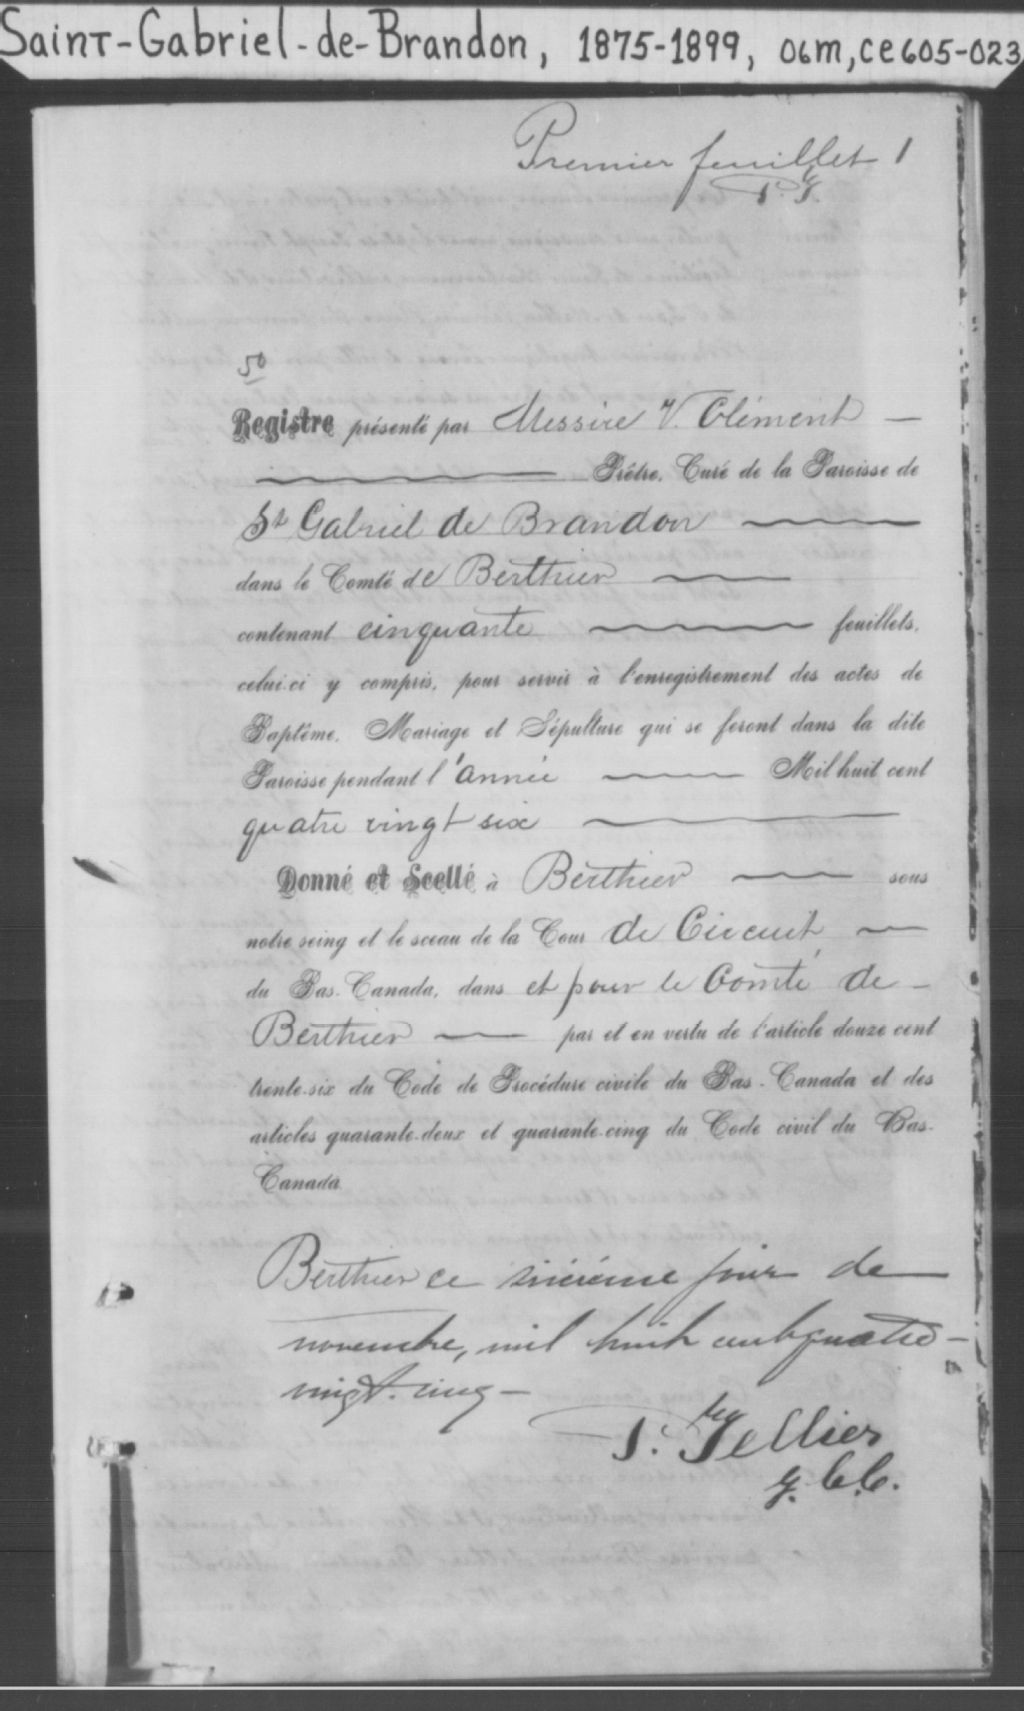 Saint-Gabriel-de-Brandon, 1875-1899, 06m, ce605-023
Premier feuillet 1
P. T.
50
Registre présenté par Messire V. Clément
Prêtre, Curé de la Paroisse de
St Gabriel de Brandon
dans le Comté de Berthier
contenant cinquante feuillets,
celui-ci y compris, pour servir à l'enregistrement des actes de
Baptême, Mariage et Sépulture qui se feront dans la dite
Paroisse pendant l'année Mil huit cent
quatre vingt six
Donné et Scellé à Berthier sous
notre seing et le sceau de la Cour de Circuit
du Bas-Canada, dans et pour le Comté de
Berthier par et en vertu de l'article douze cent
trente-six du Code de Procédure civile du Bas-Canada et des
articles quarante-deux et quarante-cinq du Code civil du Bas-
Canada
Berthier ce sixième jour de
novembre, mil huit cent quatre-
vingt-cinq
P. Tellier
g. C. C.